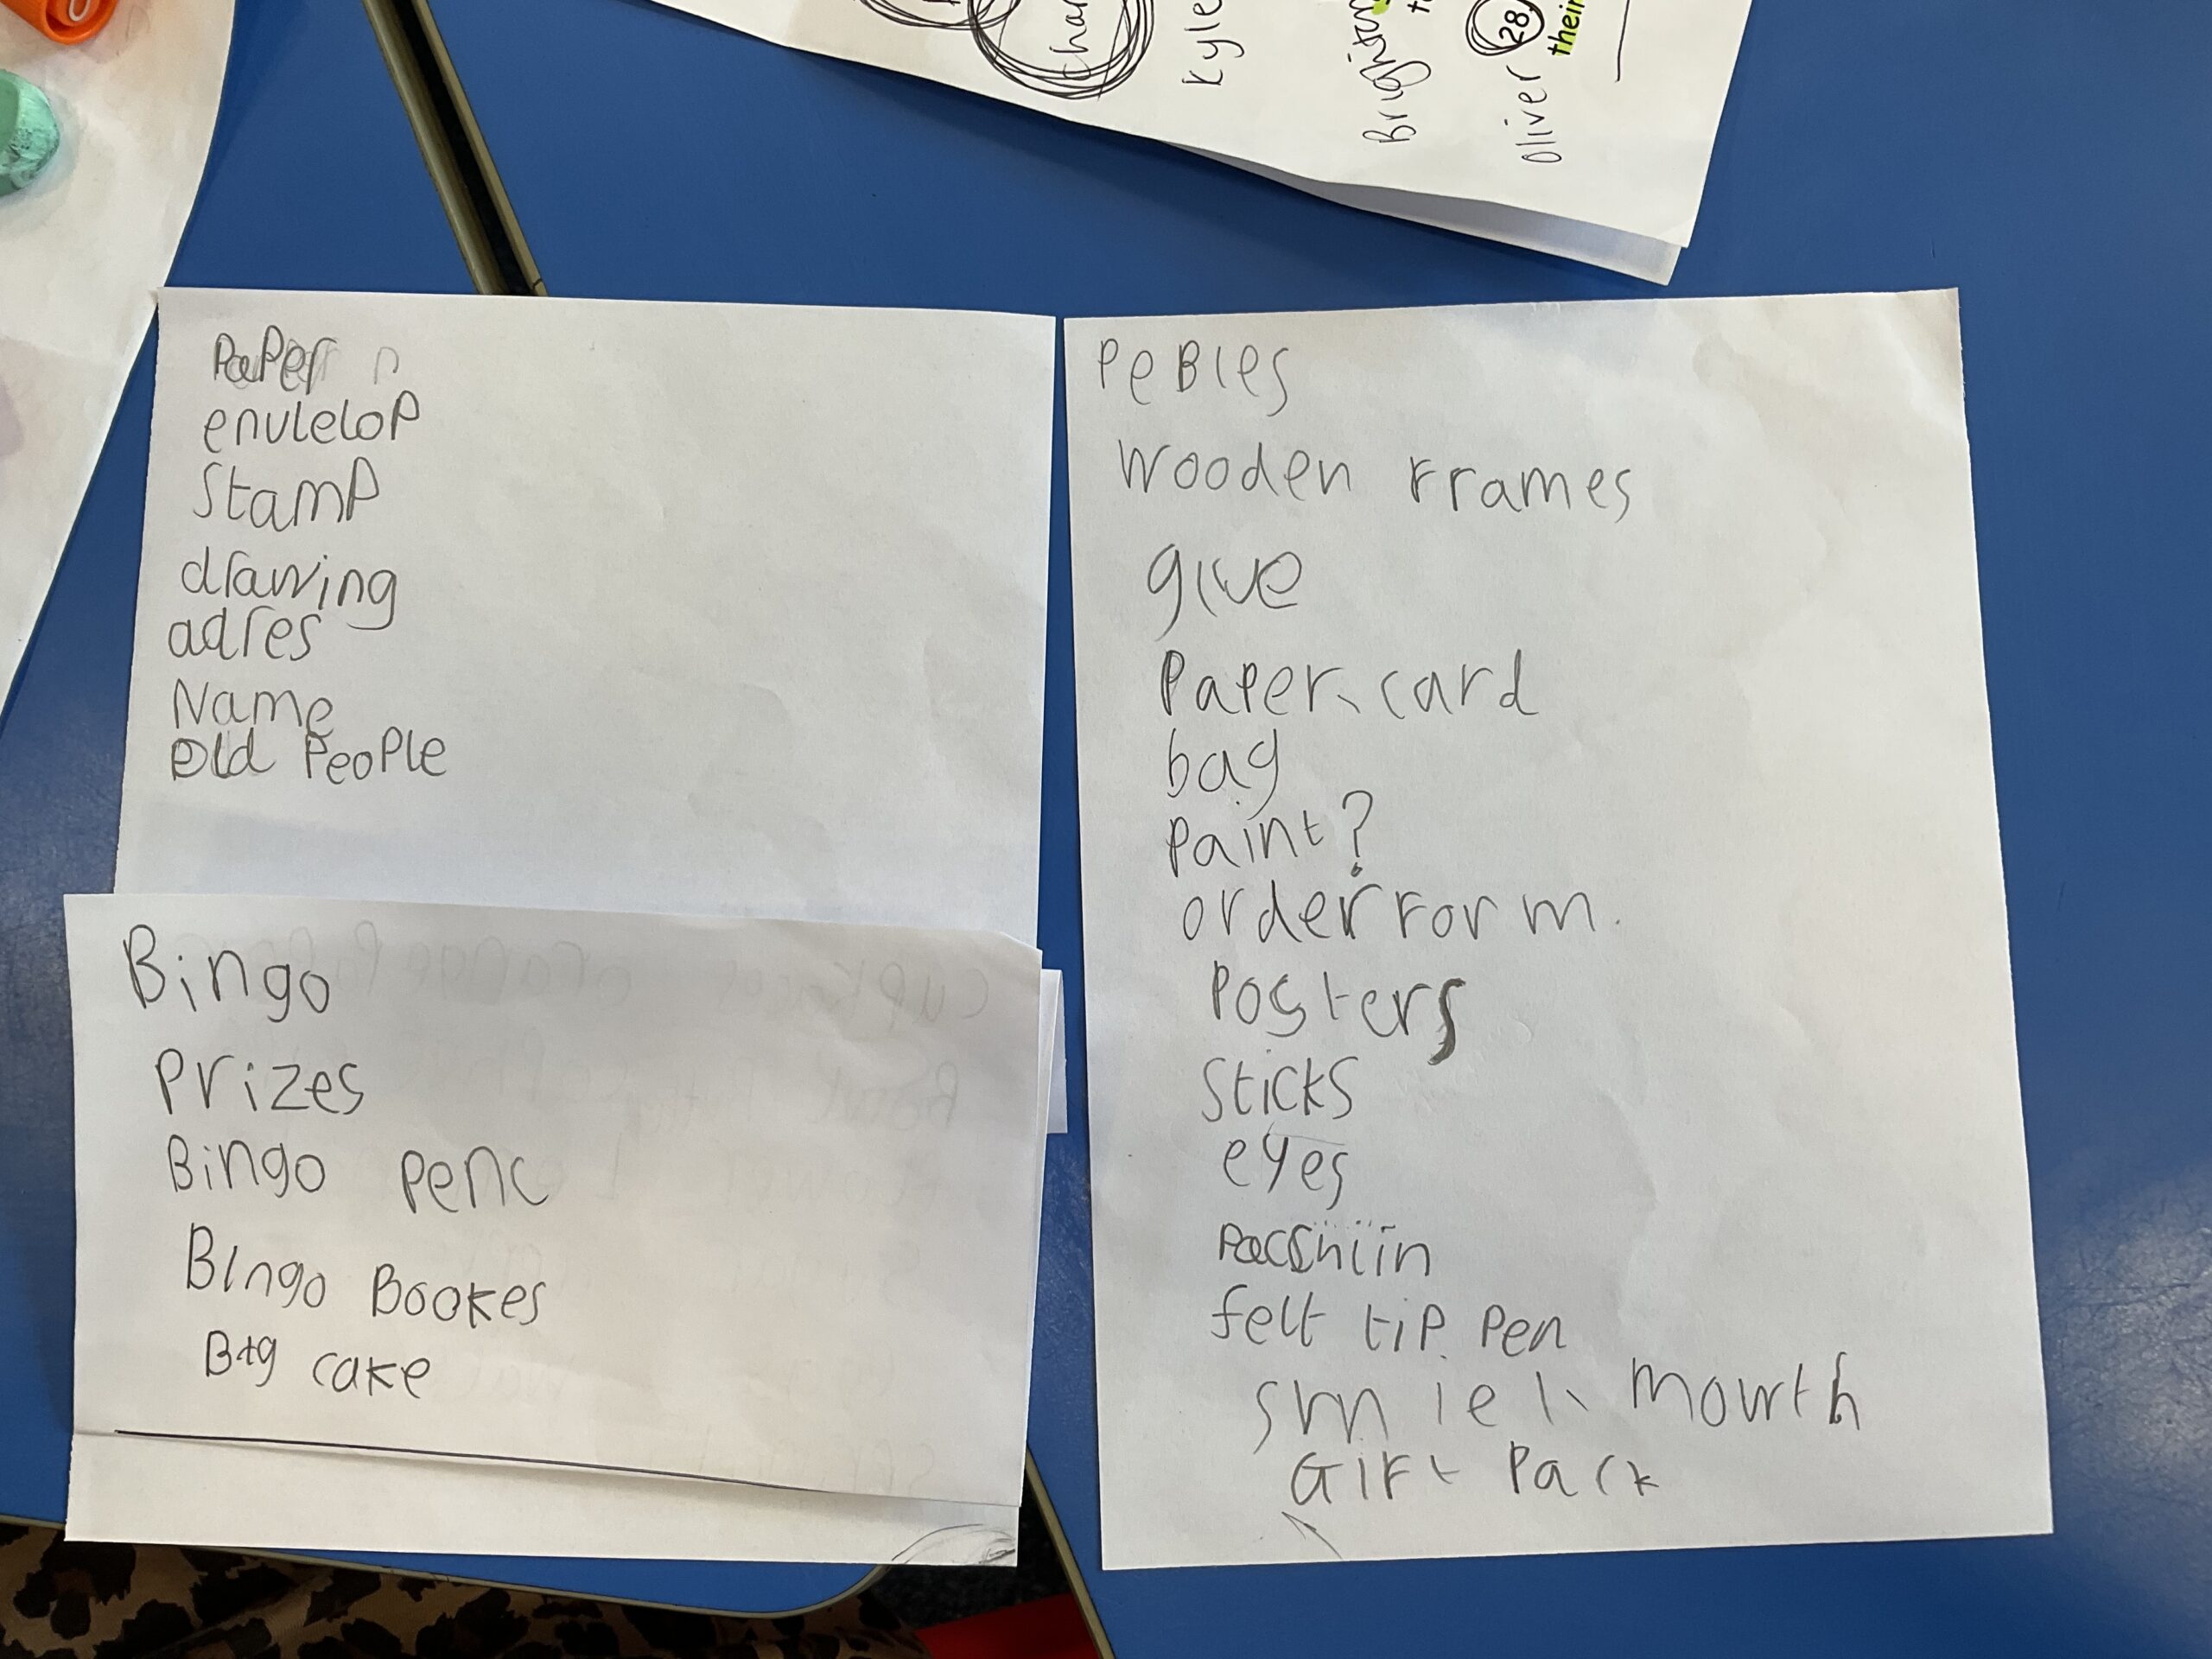 Kyle
Brighton
Oliver 28.
their
Paper
envlelop
Stamp
drawing
adres
Name
old People
Bingo
Prizes
Bingo Penc
BIngo Bookes
Big cake
PeBles
Wooden Frames
glue
Paper card
bag
Paint?
order Form.
Posters
Sticks
eyes
felt tip Pen
Smiel mowth
Gift Pack